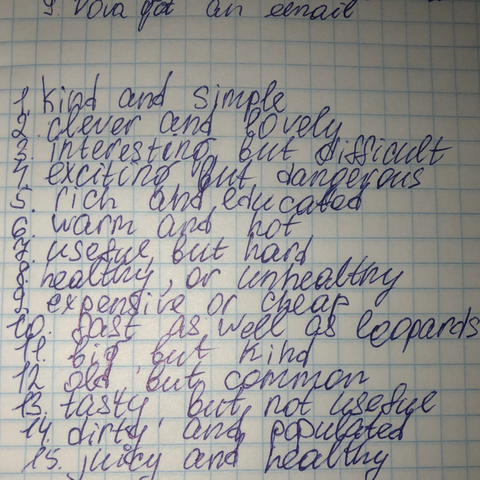 9. Vova got an eemail
1. kind and simple
2. clever and lovely
3. interesting but difficult
4. exciting but dangerous
5. rich and educated
6. warm and hot
7. useful but hard
8. healthy, or unhealthy
9. expensive or cheap
10. fast as well as leopards
11. big, but kind
12. old, but common
13. tasty, but not useful
14. dirty, and populated
15. juicy and healthy